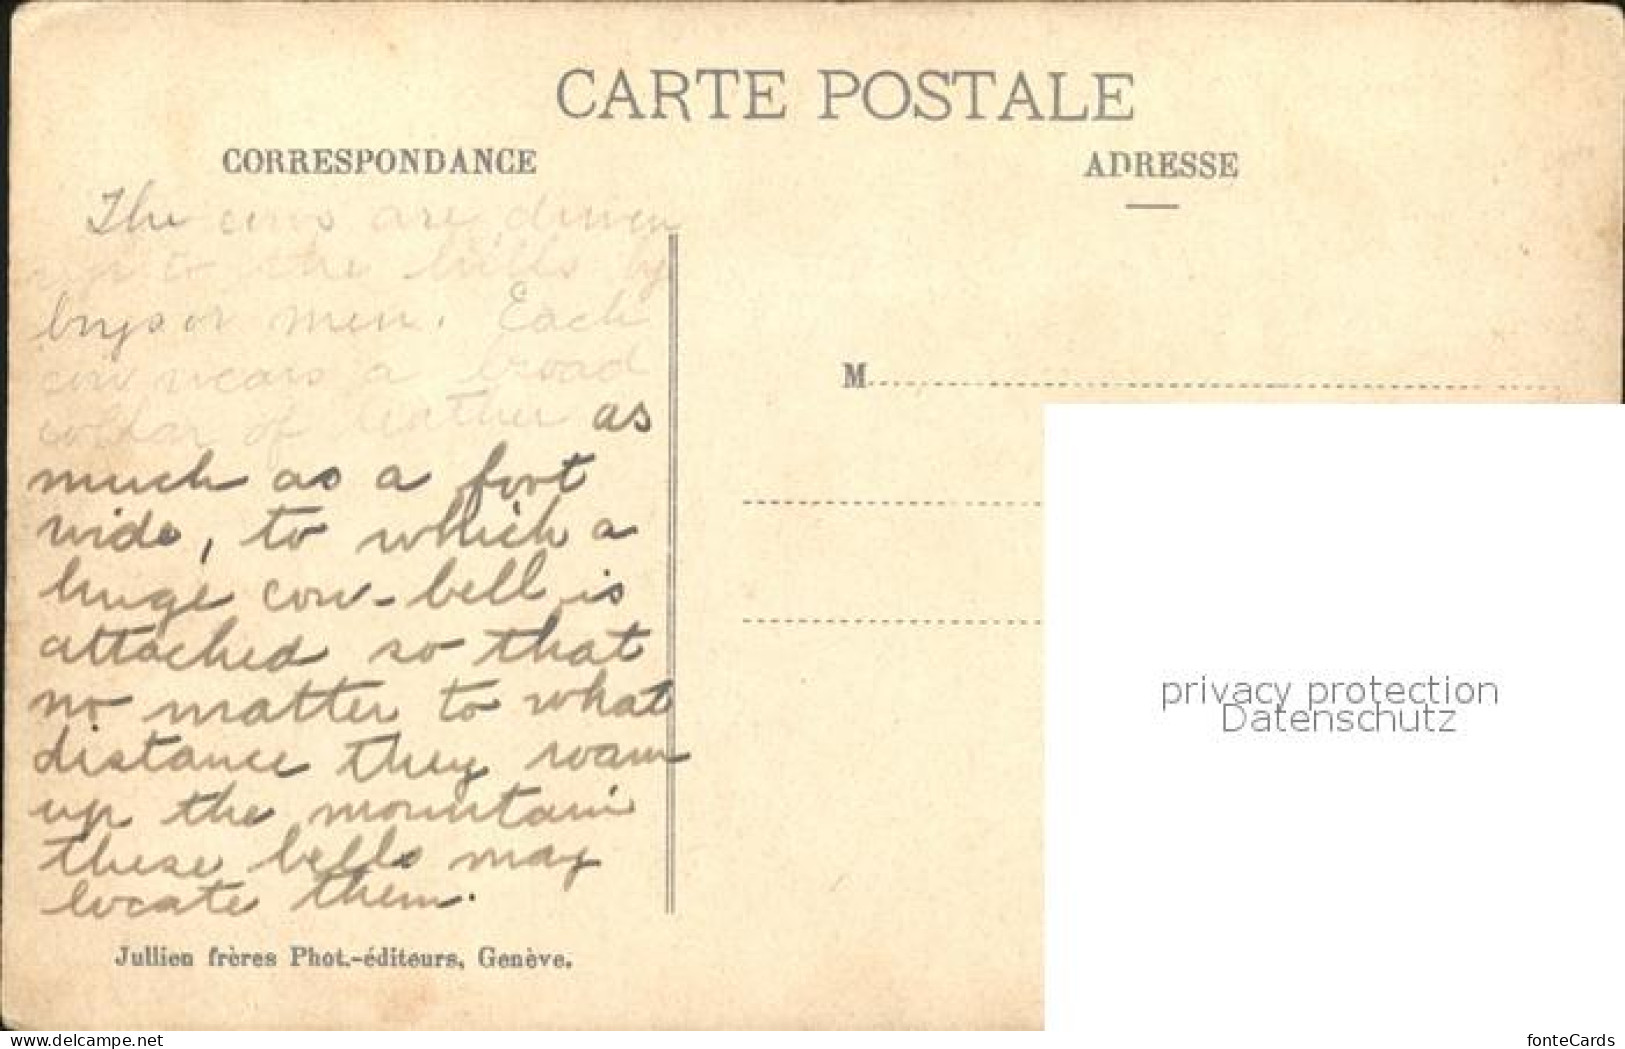 CARTE POSTALE
CORRESPONDANCE
ADRESSE
The cows are driven
up to the hills by
boys or men. Each
cow wears a broad
collar of leather as
much as a foot
wide, to which a
huge cow-bell is
attached so that
no matter to what
distance they roam
up the mountain
these bells may
locate them.
M
Jullien frères Phot.-éditeurs, Genève.
privacy protection
Datenschutz
www.delcampe.net
fonteCards